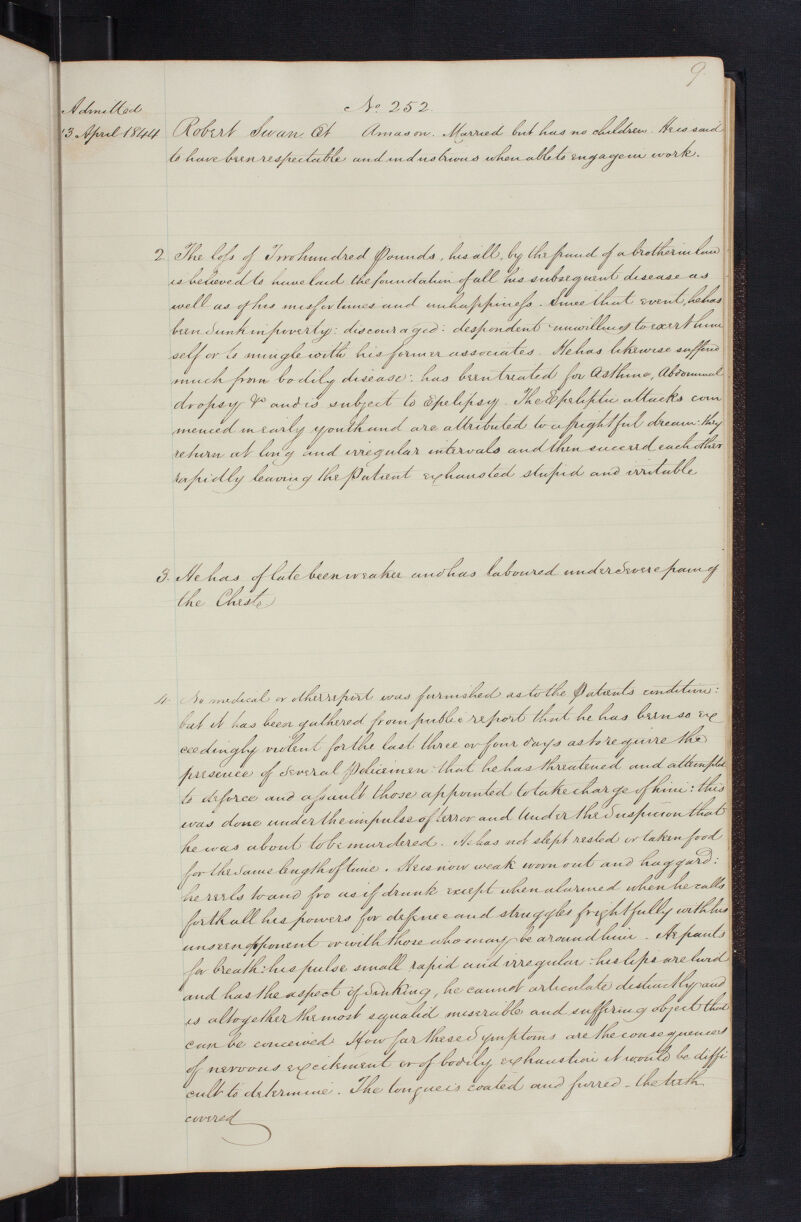 9.
Admitted
No 252
13 April 1844
Robert Swan Æt A mason. Married but has no children. He is said
to have been respectable and industrious when able to engage in work.
2 The loss of Two hundred Pounds, his all, by the fraud of a brother in law
is believed to have laid the foundation of all his subsequent disease as
well as of his misfortunes and unhappiness. Since that event, he has
been sunk in poverty: discouraged: despondent unwilling to exert him
self or to mingle with his former associates. He has likewise suffered
much from bodily disease: has been treated for Asthma, Abdominal
dropsy &c and is subject to Epelepsy. The Epeliptic attacks com
menced in early youth and are attributed to a frightful dream: they
return at long and irregular intervals and then succeed each other
rapidly leaving the Patient exhausted stupid and irritable
3. He has of late been weaker and has laboured under severe pain of
the Chest
4 No medical or other report was furnished as to the Patients condition:
but it has been gathered from public report that he has been so ex
ceedingly violent for the last three or four days as to require the
presence of several Policemen: that he has threatened and attempted
to deforce and assault those appointed to take charge of him: this
was done under the impulse of terror and under the suspicion that
he was about to be murdered. He has not slept rested or taken food
for the same length of time. He is now weak worn out and haggard:
he reels to and fro as if drunk except when alarmed when he calls
forth all his powers for defence and struggles frightfully with his
unseen opponent or with those who may be around him. He pants
for breath: his pulse small rapid and irregular: his lips are livid
and has the aspect of sinking, he cannot articulate distinctly and
is altogether the most squalid miserable and suffering object that
can be conceived. How far these symptoms are the consequences
of nervous excitement or of bodily exhaustion it would be diffi
cult to determine. The tongue is coated and furred - the teeth
covered